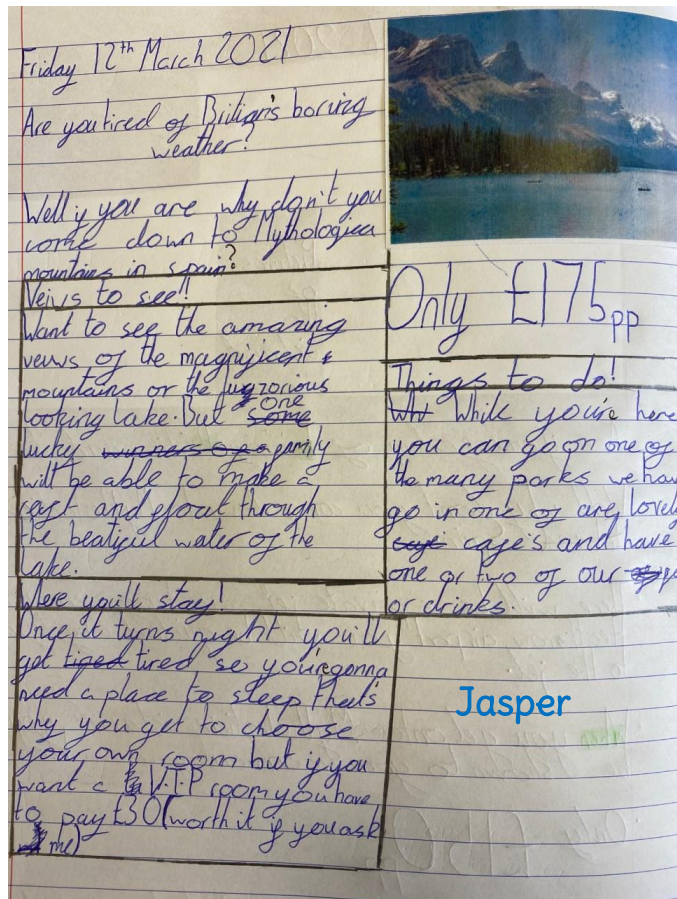 Friday 12th March 2021
Are you tired of Britian's boring
weather?
Well if you are why don't you
come down to Mythologica
mountains in spain?
Veiws to see!!
Want to see the amazing
veiws of the magnificent
mountains or the luxzorious
looking lake. But some one
lucky winners of a family
will be able to make a
raft and float through
the beatiful water of the
lake.
Where you'll stay!
Once it turns night you'll
get tired tired so you're gonna
need a place to sleep that's
why you get to choose
your own room but if you
want a V.I.P room you have
to pay £30 (worth it if you ask
me)
Only £175pp
Things to do!
While you're here
you can go on one of
the many parks we hav
go in one of are lovely
cafe's and have
one or two of our
or drinks.
Jasper